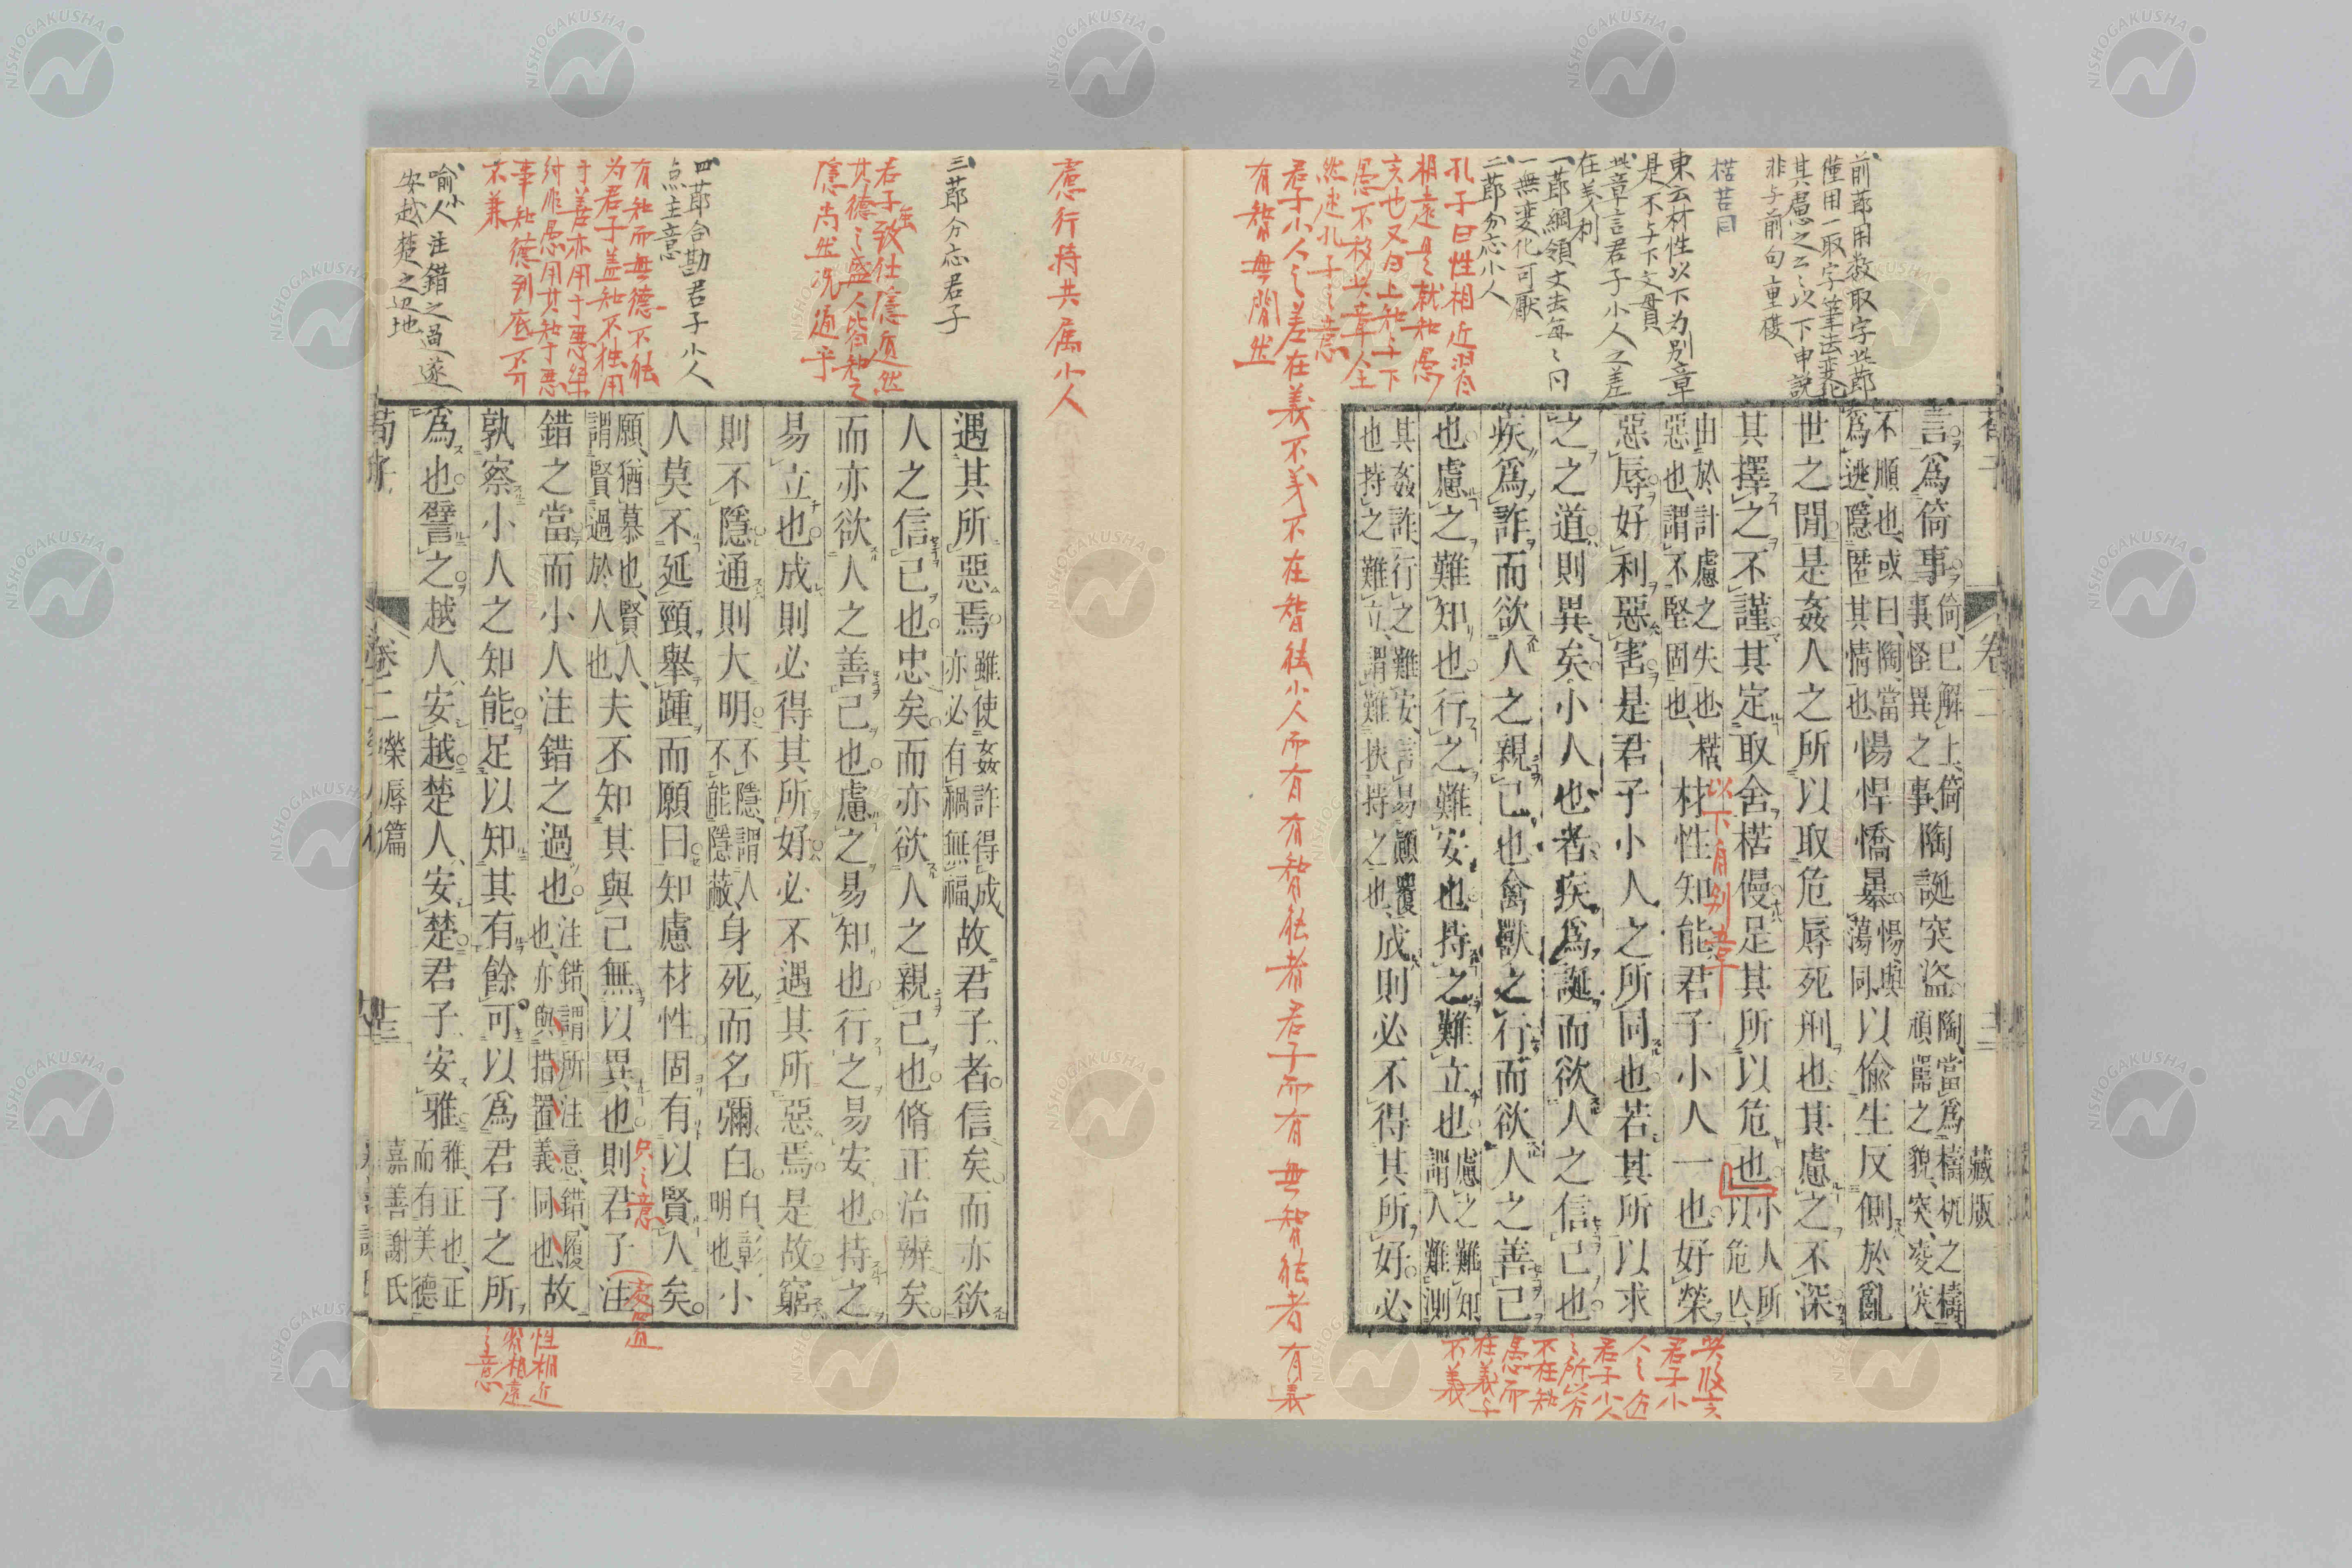 前莭用数取字此莭
僅用一取字筆法変化
其慮之云〻以下申説
非与前句重複
楛苦同
東云材性以下为别章
是不与下文貫
此章言君子小人之差
在義利
一莭綱領文去毎〻同
一無変化可厭
二莭分忘小人
孔子曰性相近習
相遠是就知愚
亥也又曰上知与下
愚不移此章全
然述孔子之意
君子小人之差在義不義不在智能小人而有有智能者君子而有無智能者有義
有智無間然
卷二
藏版
言爲倚事倚已解上倚事怪異之事陶誕突盜陶當爲檮杌之檮頑嚚之貌突凌突
不順也或曰陶當爲逃隱匿其情也愓悍憍暴愓與蕩同以偸生反側於亂
世之閒是姦人之所以取危辱死刑也其慮之不深
其擇之不謹其定取舍楛僈足其所以危也小人所以危亡
由於計慮之失也楛惡也謂不堅固也材性知能君子小人一也好榮
惡辱好利惡害是君子小人之所同也若其所以求
之之道則異矣小人也者疾爲誕而欲人之信己也
疾爲詐而欲人之親己也禽獸之行而欲人之善己
也慮之難知也行之難安也持之難立也慮之難知謂人難測
其姦詐行之難安言易顚覆也持之難立謂難扶持之也成則必不得其所好必
以下自别章
君子小
君子小人
之所以分
不在知
愚而
在義与
不義
慮行持共属小人
三莭分忘君子
君子致仕隱遁然
其德之盛人皆知之
隱尚然况通乎
四莭合勘君子小人
点主意
有知而無德不能
为君子盖知不独用
于善亦用于悪桀
紂非愚用其知于悪
事知德到底不可
不兼
喩小人注錯之過遂
安越楚之辺地
遇其所惡焉雖使姦詐得成亦必有禍無福故君子者信矣而亦欲
人之信己也忠矣而亦欲人之親己也脩正治辨矣
而亦欲人之善己也慮之易知也行之易安也持之
易立也成則必得其所好必不遇其所惡焉是故窮
則不隱通則大明不隱謂人不能隱蔽身死而名彌白白彰明也小
人莫不延頸舉踵而願曰知慮材性固有以賢人矣
願猶慕也賢人謂賢過於人也夫不知其與己無以異也則君子注
錯之當而小人注錯之過也注錯謂所注意錯履也亦與措置義同也故
孰察小人之知能足以知其有餘可以爲君子之所
爲也譬之越人安越楚人安楚君子安雅雅正也正而有美德
荀子
卷二
榮辱篇
十三
嘉善謝氏
只之意
処置
性相近
習相遠
之意
NISHOGAKUSHA